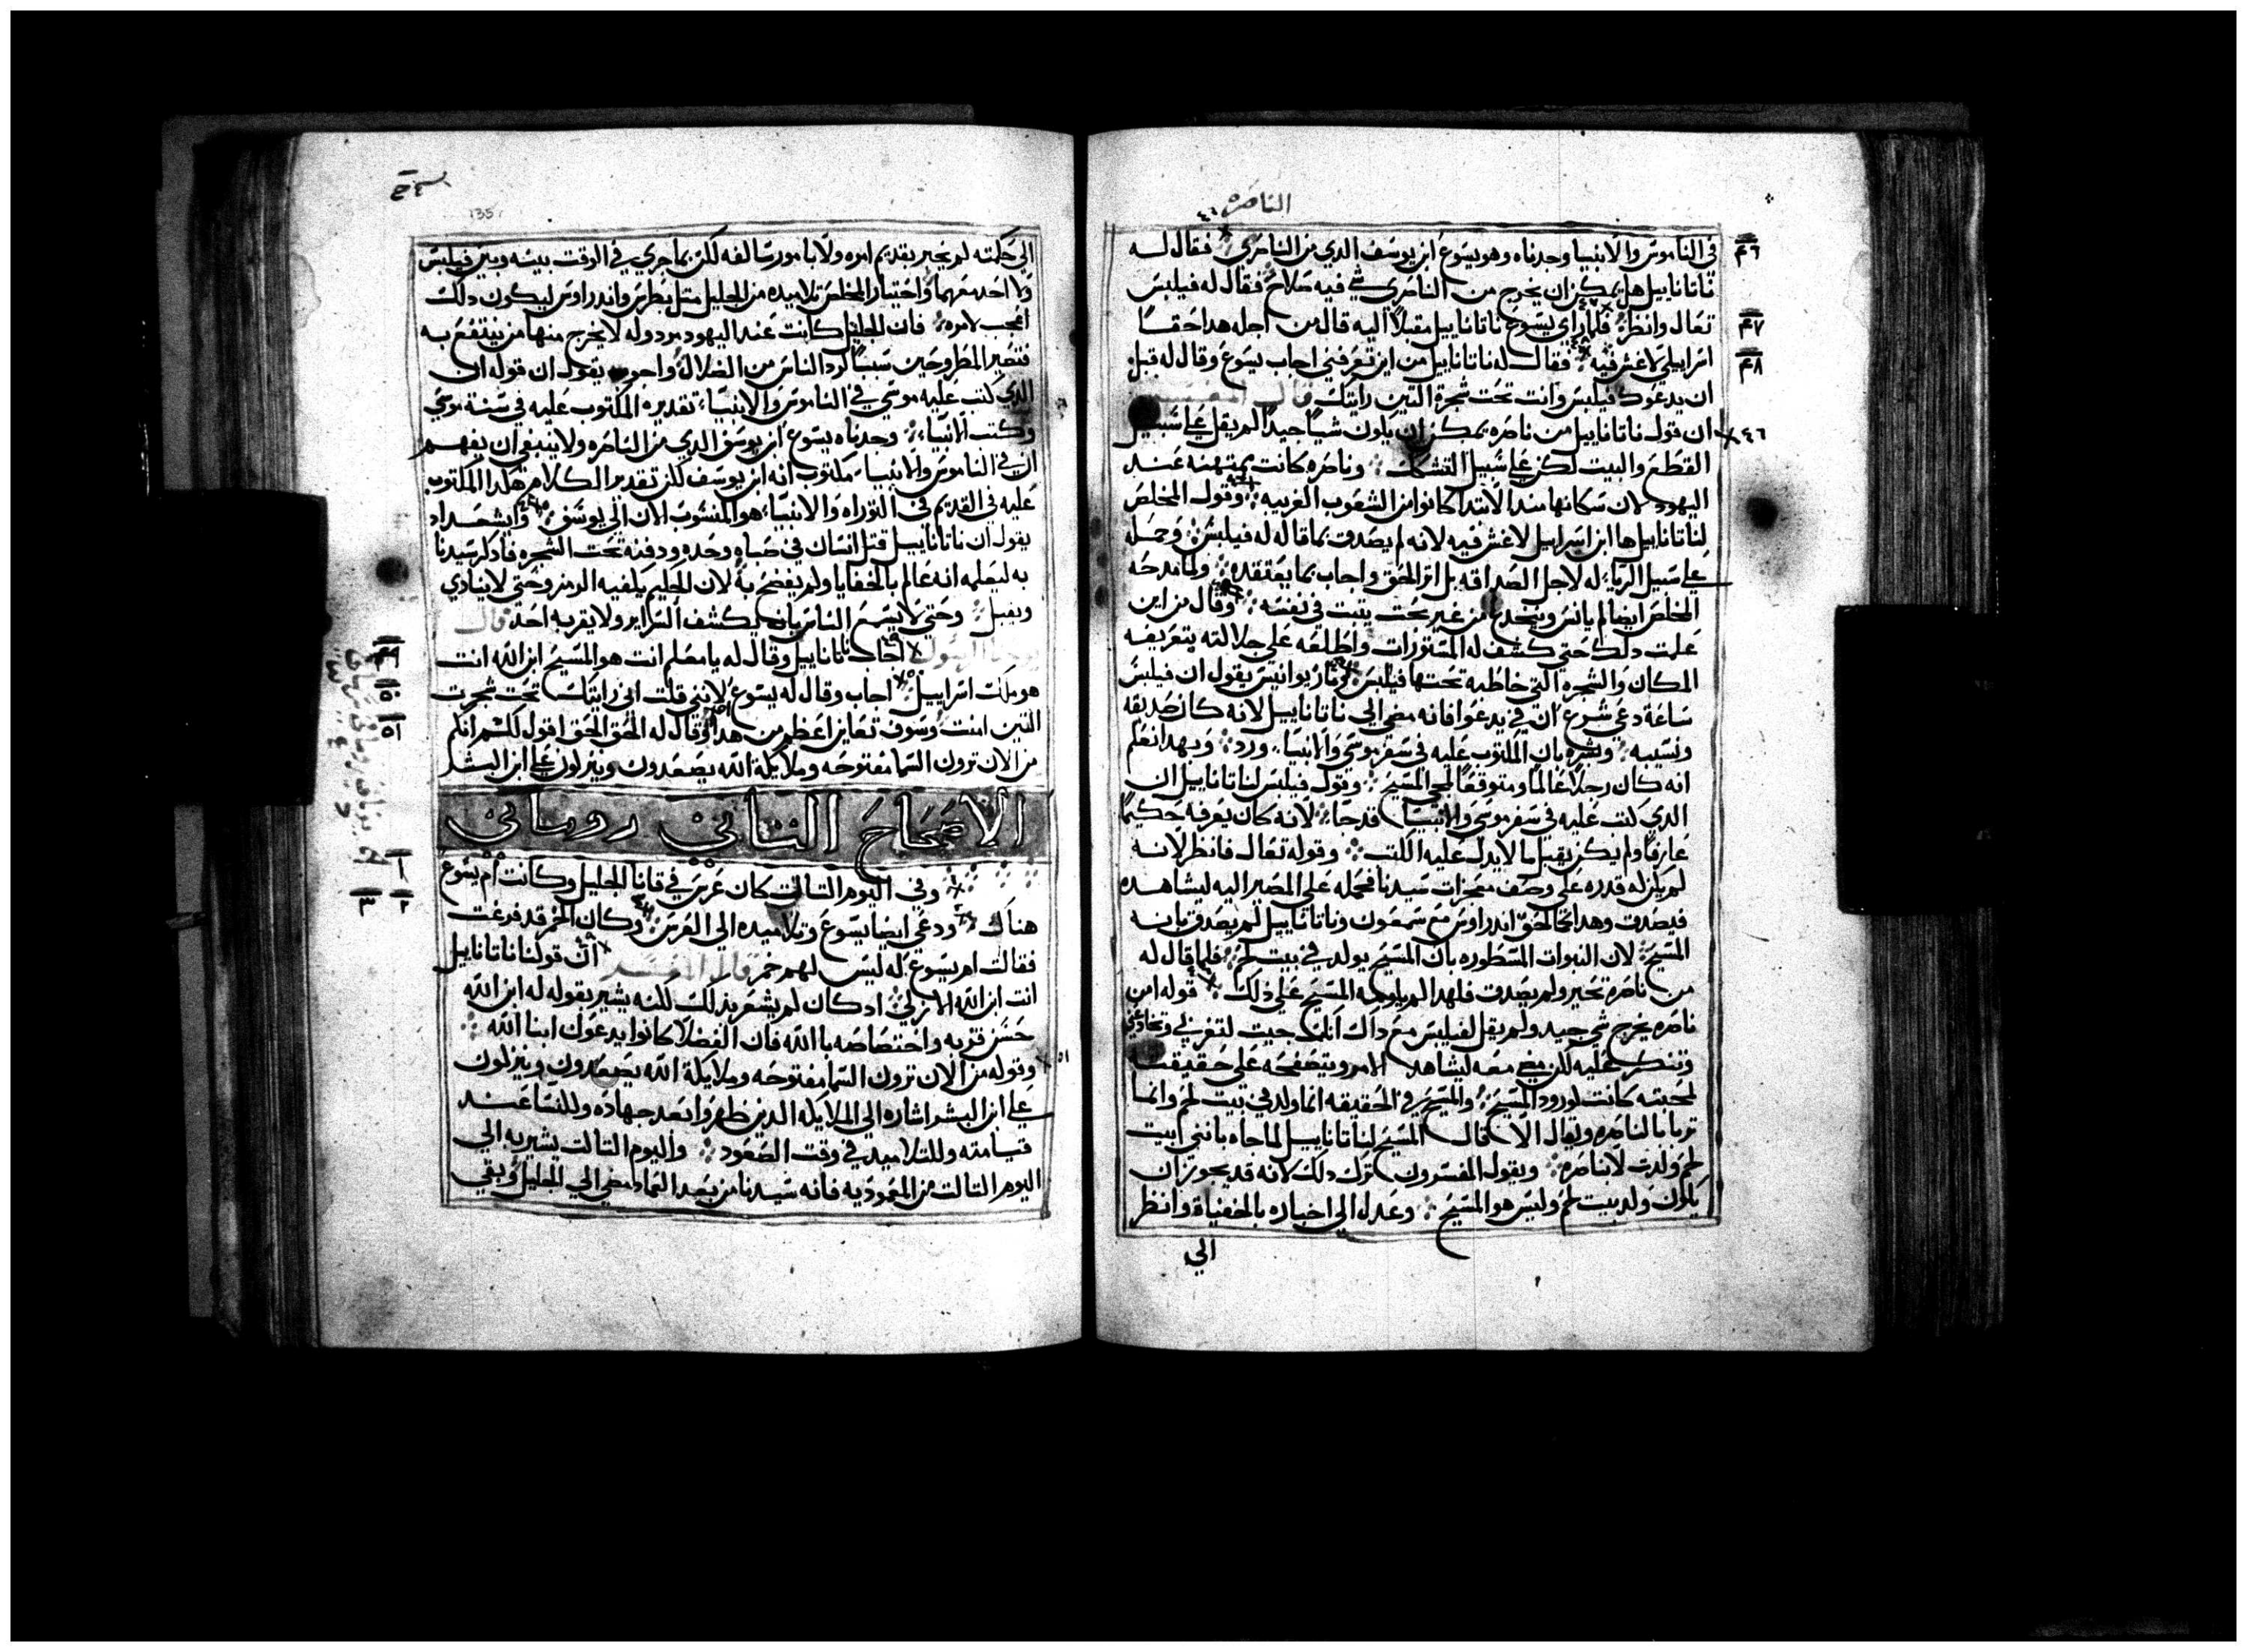 الناصره
في الناموس والانبيا وجدناه وهو يسوع ابن يوسف الدي من الناصري فقال له
ناتانابيل هل يمكن ان يخرج من الناصري شي فيه صلاح فقال له فيلبس
تعال وانظر فلما راي يسوع ناتانابيل مقبلاً اليه قال من اجله هدا حقاً
اسراييلي لا غش فيه فقال له ناتانابيل من اين تعرفني اجاب يسوع وقال له قبل
ان يدعوك فيلبس وانت تحت شجرة التين رايتك قال المفسر
ان قول ناتانابيل من ناصره يمكن ان يكون شياً جيداً لم يقل علي سبيل
القطع والبت لكن علي سبيل التشكك وناصره كانت ممتهنه عند
اليهود لان سكانها مند الابتدا كانوا من الشعوب الغريبه وقول المخلص
لناتانابيل ها ابن اسراييل لا غش فيه لانه لم يصدق بما قاله له فيلبس وحمله
علي سبيل الريا له لاجل الصداقه بل اثر الحق واجاب بما يعتقده ولما مدحه
المخلص ايضا لم يانس وينخدع من غير بحت يتبت في نفسه وقال من اين
علمت دلك حتي كشف له المستورات واطلعه علي جلالته بتعريفه
المكان والشجره التي خاطبه تحتها فيلبس مار يوانيس يقول ان فيلبس
ساعة دعي شرع ان يدعوا فانه مضي الي ناتانابيل لانه كان صديقه
ونسيبه وبشره بان المكتوب عليه في سفر موسي والانبيا ورد وبهدا نعلم
انه كان رجلاً عالماً ومتوقعاً لمجي المسيح وقول فيلبس لناتانابيل ان
الدي كتب عليه في سفر موسي والانبيا قد جا لانه كان يعرفه حكيماً
عارفاً ولم يكن يقبل ما لا يدل عليه الكتب وقوله تعال فانظر لانه
لم يكن له قدره علي وصف معجزات سيدنا فحمله علي المصير اليه ليشاهده
فيصدق وهدا نحا نحو اندراوس مع سمعون وناتانابيل لم يصدق بانه
المسيح لان النبوات المسطوره بان المسيح يولد في بيت لحم فلما قال له
من ناصره تحير ولم يصدق فلهدا لم يلومه المسيح علي ذلك قوله امن
ناصره يخرج شي جيد ولم يقل لفيلبس مع داك انك جيت لتغرني وتخادعني
وتنكر عليه لكن مضي معه ليشاهد الامر ويتصفحه علي حقيقته
لمحبته كانت لورود المسيح والمسيح في الحقيقه انما ولد في بيت لحم وانما
تربا بالناصره ويقال الا قال المسيح لناتانابيل لما جاه بانني ابيت
لحم ولدت لا بناصره ويقول المفسرون ترك دلك لانه قد يجوز ان
يكون ولد ببيت لحم وليس هو المسيح وعدل الي اخباره بالخفياة وانظر
الي
135
الي حكمته لم يخبر بقديم امره ولا بامور سالفه لكن بما جري في الوقت بينه وبين فيلبس
ولا احد معهما واختيار المخلص تلاميده من الجليل متل بطرس واندراوس ليكون دلك
اعجب لامره فان الجليل كانت عند اليهود مردوله لا يخرج منها من ينتفع به
فتصير المطروحين سبباً لرد الناس من الضلال واخرون يقول ان قوله ان
الدي كتب عليه موسي في الناموس والانبيا تقديره المكتوب عليه في سنة موسي
وكتب الانبيا وجدناه يسوع ابن يوسف الدي من الناصره ولا ينبغي ان يفهم
ان في الناموس والانبيا مكتوب انه ابن يوسف لكن تقدير الكلام هكدا المكتوب
عليه في القديم في التوراه والانبيا هو المنسوب الان الي يوسف وايشعداد
يقول ان ناتانابيل قتل انسان في صباه وحده ودفنه تحت الشجره فادكر سيدنا
به ليعلمه انه عالم بالخفايا ولم يفضح به لان الحليم يكفيه الرمز وحتي لا ينادي
ويقبل وحتي لا يسمع الناس بانه يكشف السراير ولا يقربه احد قال
يوحنا الرسول اجاب ناتانابيل وقال له يا معلم انت هو المسيح ابن الله انت
هو ملك اسراييل اجاب وقال له يسوع لانني قلت اني رايتك تحت شجرت
التين امنت وسوف تعاين اعظم من هدا وقال له الحق الحق اقول لكم انكم
من الان ترون السما مفتوحه وملايكة الله يصعدون وينزلون علي ابن البشر
الاصحاح التاني روماني
وفي اليوم التالت كان عرس في قانا الجليل وكانت ام يسوع
هناك ودعي ايضا يسوع وتلاميده الي العرس وكان الخمر قد فرغت
فقالت ام يسوع له ليس لهم خمر قال المفسر ان قولنا ناتانابيل
انت ابن الله الازلي اد كان لم يشعر بذلك لكنه يشير بقوله له ابن الله
حسن قربه واختصاصه بالله فان الفضلا كانوا يدعون ابنا الله
وقوله من الان ترون السما مفتوحه وملايكة الله يصعدون وينزلون
علي ابن البشر اشاره الي الملايكه الدين ظهروا بعد جهاده وللنسا عند
قيامته وللتلاميد في وقت الصعود واليوم التالت يشير به الي
اليوم التالت من المعموديه فانه سيدنا من بعد العماد مضي الي الجليل وبقي